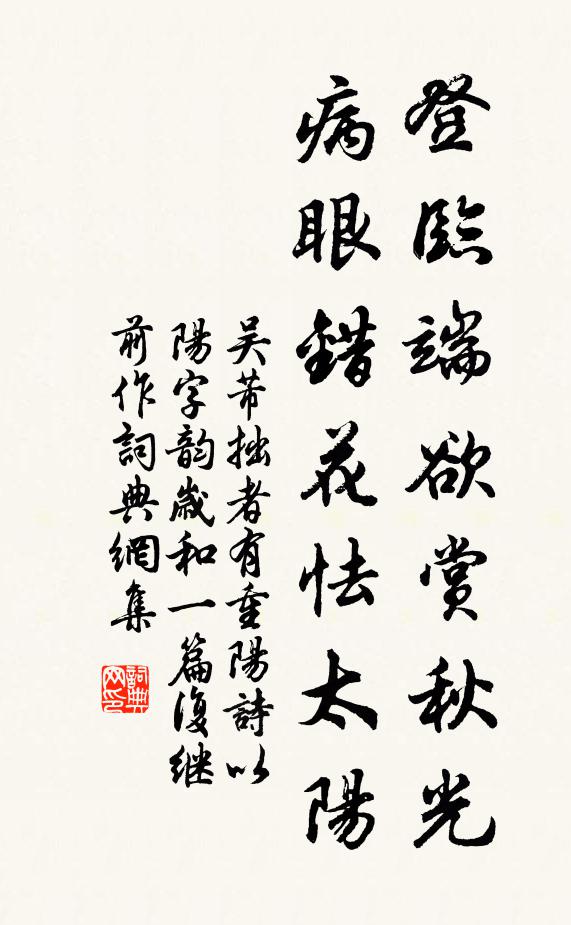 登臨端欲賞秋光
病眼錯花怯太陽
吴芾拙者有重陽詩以
陽字韵歲和一篇復继
前作詞典網集
詞典网印